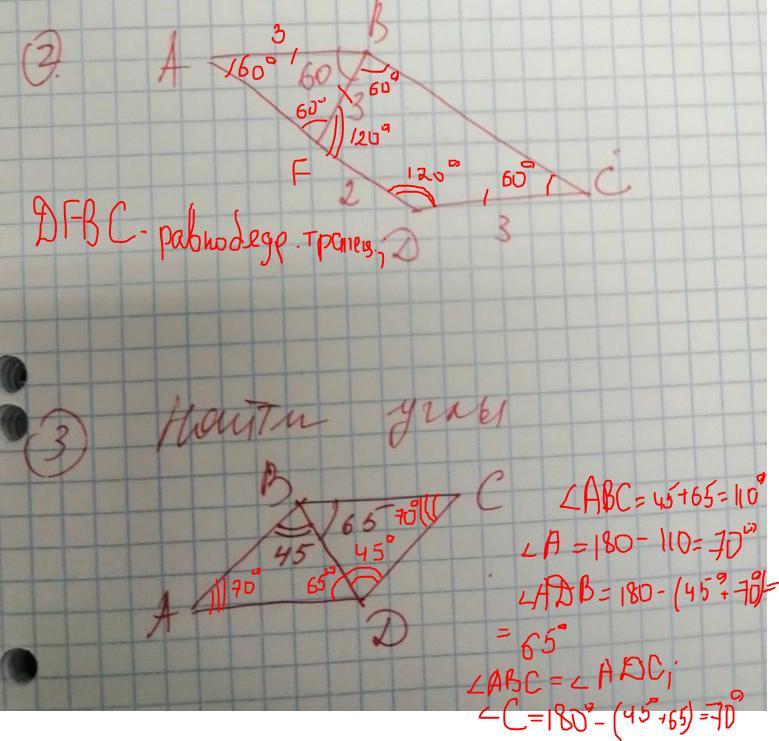 2.
3
B
A
60°
60
60°
3
60°
120°
F
120°
60°
C
2
D
3
DFBC - равнобедр. трапец;
3
Найти углы
B
C
65
70°
45
45°
70°
65°
A
D
∠ABC = 45+65 = 110°
∠A = 180 - 110 = 70°
∠ADB = 180 - (45°+70°) =
= 65°
∠ABC = ∠ADC;
∠C = 180° - (45°+65) = 70°